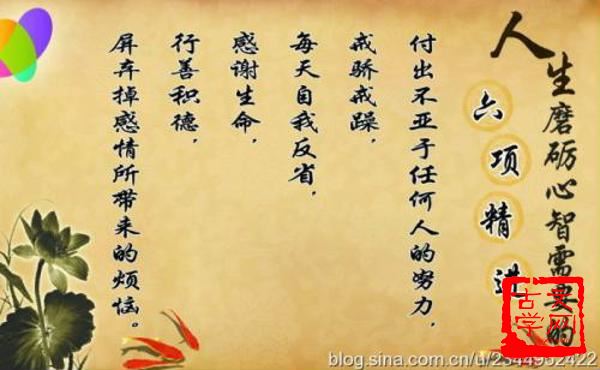 人生磨砺心智需要的
六项精进
付出不亚于任何人的努力,
戒骄戒躁,
每天自我反省,
感谢生命,
行善积德,
屏弃掉感情所带来的烦恼。
古学
blog.sina.com.cn/u/2344932422